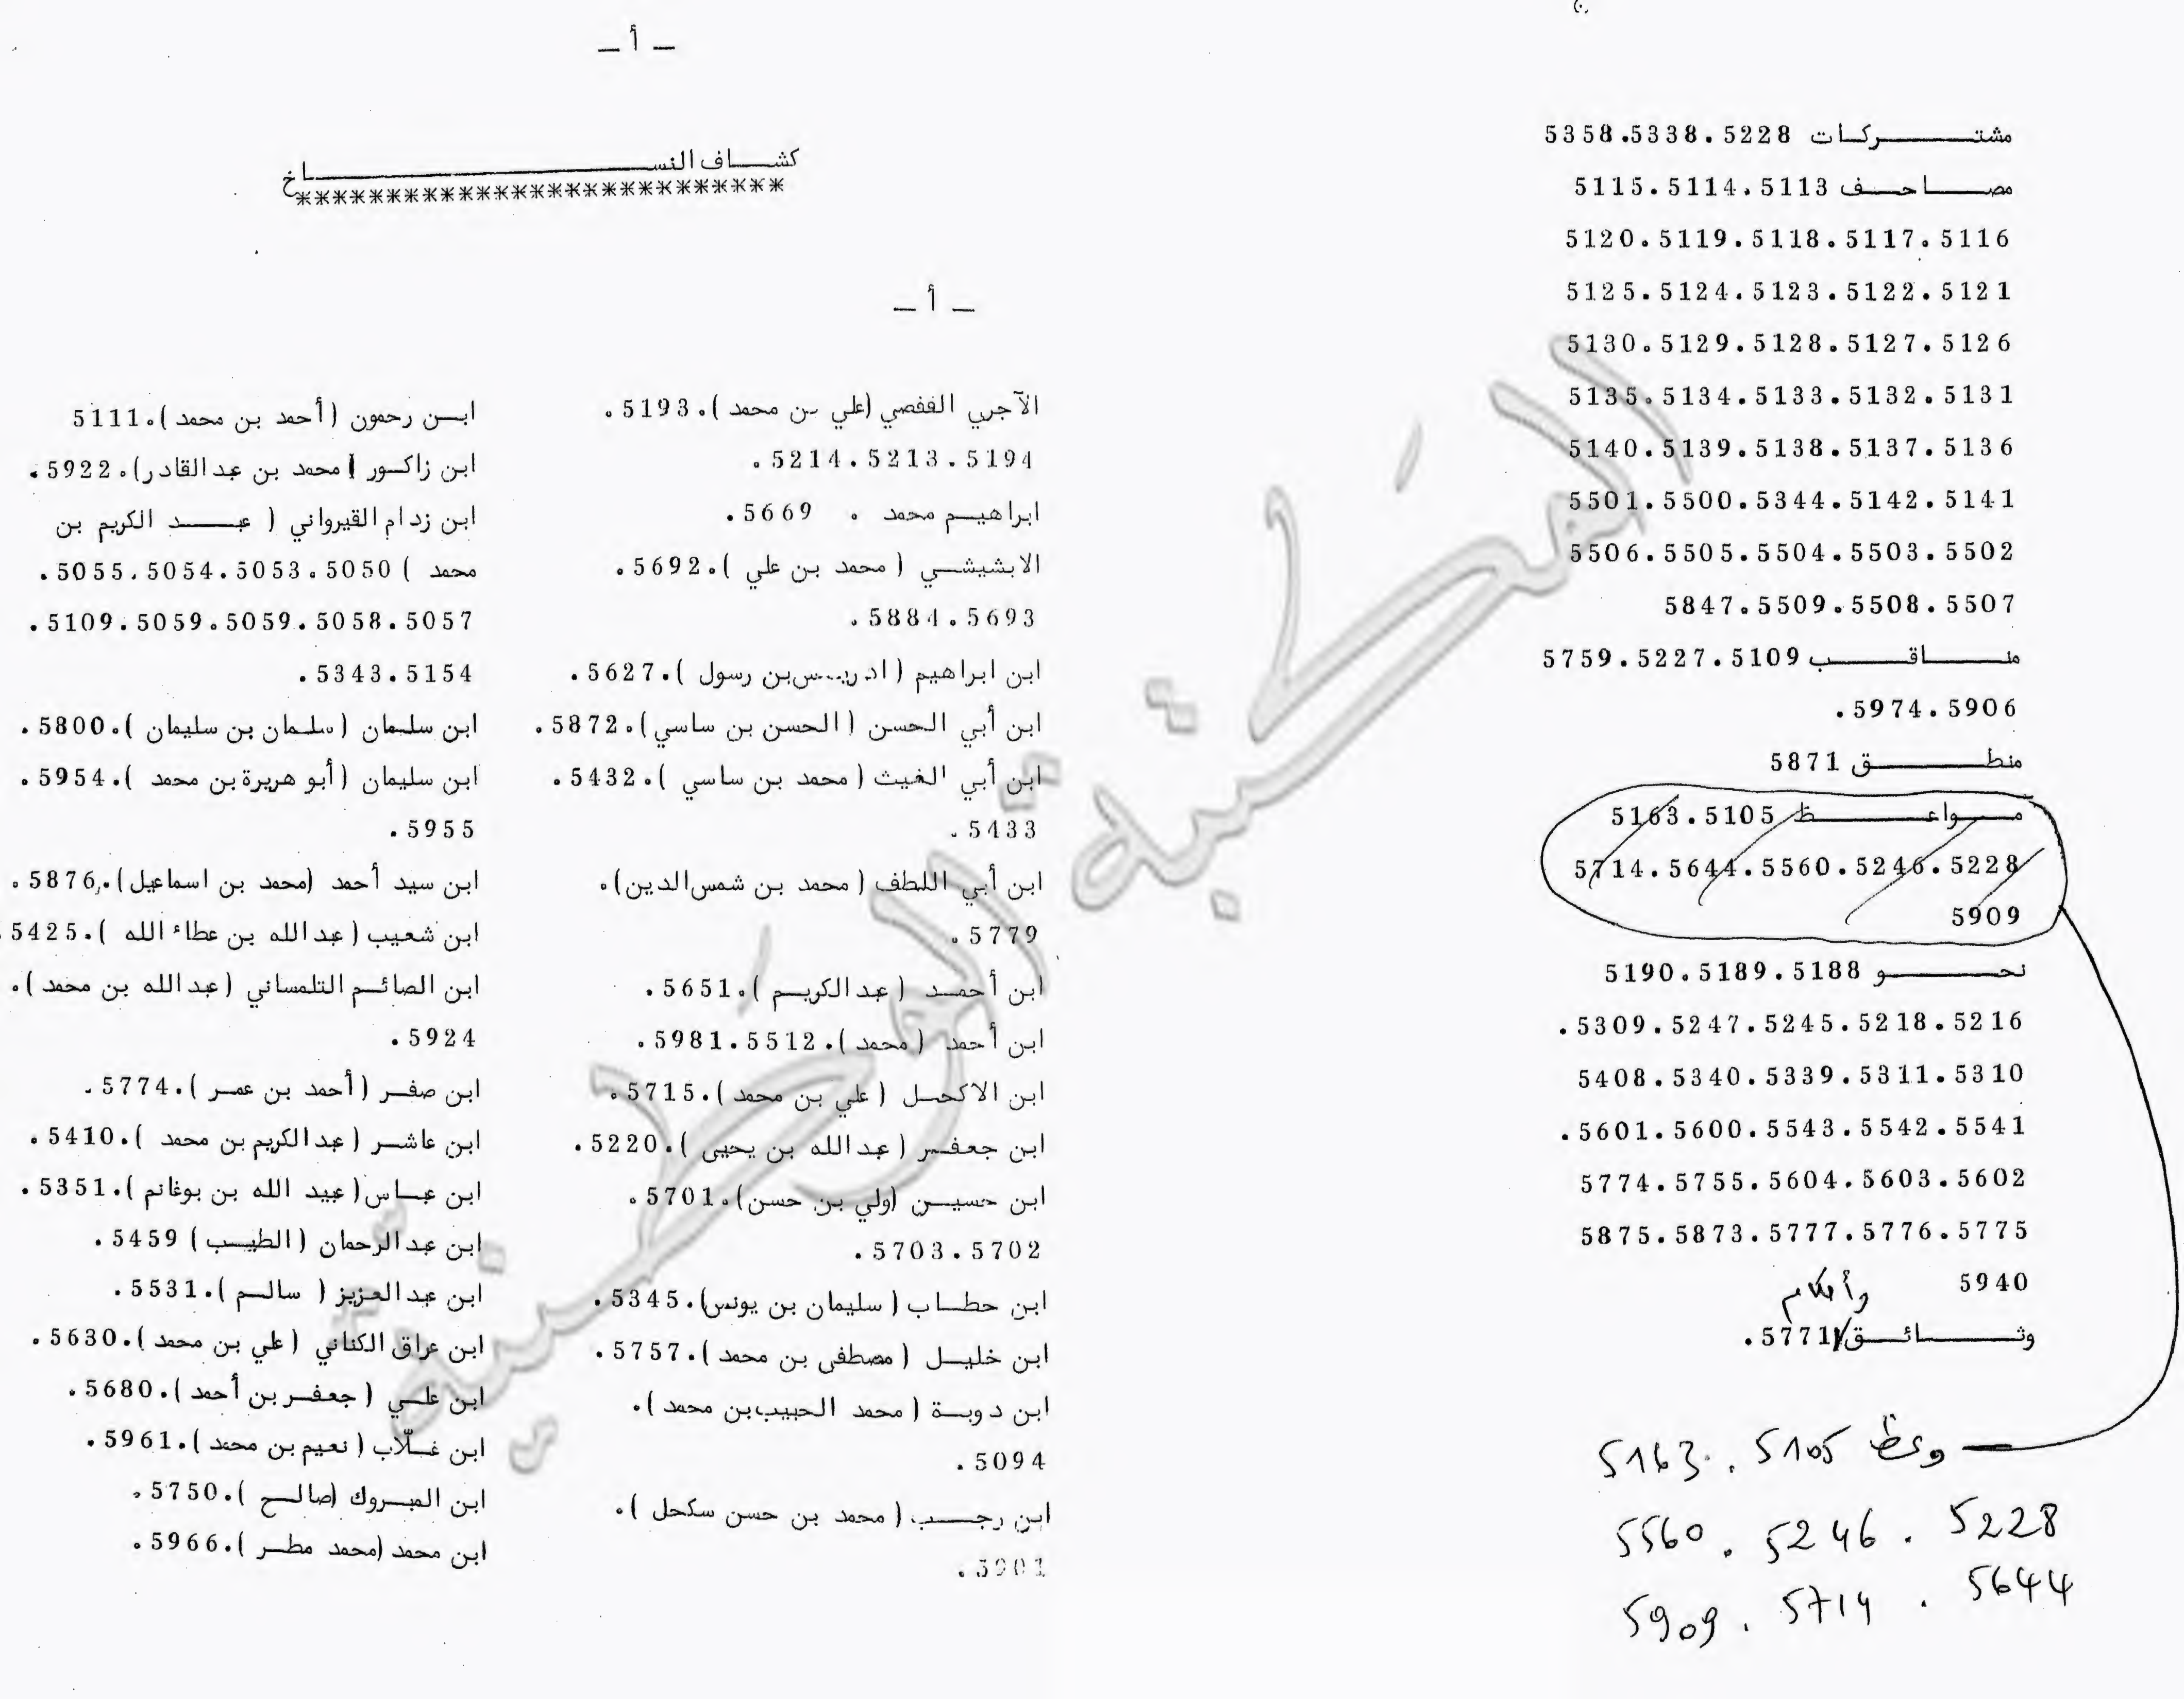 مشتركات 5228.5338.5358
مصاحف 5113.5114.5115
5116.5117.5118.5119.5120
5121.5122.5123.5124.5125
5126.5127.5128.5129.5130
5131.5132.5133.5134.5135
5136.5137.5138.5139.5140
5141.5142.5344.5500.5501
5502.5503.5504.5505.5506
5507.5508.5509.5847
مناقب 5109.5227.5759
5906.5974.
منطق 5871
مواعظ 5105.5163
5228.5246.5560.5644.5714
5909
نحو 5188.5189.5190
5216.5218.5245.5247.5309.
5310.5311.5339.5340.5408
5541.5542.5543.5600.5601.
5602.5603.5604.5755.5774
5775.5776.5777.5873.5875
5940
وأحكام
وثائق/5771.
وعظ 5105 . 5163
5228 . 5246 . 5560
5644 . 5714 . 5909
ـ أ ـ
كشاف النساخ
***************************
ـ أ ـ
الآجري القفصي (علي بن محمد ).5193.
5194.5213.5214.
ابراهيم محمد . 5669.
الابشيشي ( محمد بن علي ).5692.
5693.5884.
ابن ابراهيم ( ادريس بن رسول ).5627.
ابن أبي الحسن ( الحسن بن ساسي).5872.
ابن أبي الغيث ( محمد بن ساسي ).5432.
5433.
ابن أبي اللطف ( محمد بن شمس الدين).
5779.
ابن أحمد ( عبد الكريم ).5651.
ابن أحمد ( محمد ).5512.5981.
ابن الاكحل ( علي بن محمد ).5715.
ابن جعفر ( عبد الله بن يحيى ).5220.
ابن حسين (ولي بن حسن).5701.
5702.5703.
ابن حطاب ( سليمان بن يونس).5345.
ابن خليل ( مصطفى بن محمد ).5757.
ابن دوبة ( محمد الحبيب بن محمد ).
5094.
ابن رجب ( محمد بن حسن سكحل ).
5901.
ابن رحمون ( أحمد بن محمد ).5111
ابن زاكور ( محمد بن عبد القادر).5922.
ابن زدام القيرواني ( عبد الكريم بن
محمد ) 5050.5053.5054.5055.
5057.5058.5059.5059.5109.
5154.5343.
ابن سلمان ( سلمان بن سليمان ).5800.
ابن سليمان ( أبو هريرة بن محمد ).5954.
5955.
ابن سيد أحمد (محمد بن اسماعيل).5876.
ابن شعيب ( عبد الله بن عطاء الله ).5425.
ابن الصائم التلمساني ( عبد الله بن محمد ).
5924.
ابن صفر ( أحمد بن عمر ).5774.
ابن عاشر ( عبد الكريم بن محمد ).5410.
ابن عباس( عبيد الله بن بوغانم ).5351.
ابن عبد الرحمان ( الطيب ) 5459.
ابن عبد العزيز ( سالم ).5531.
ابن عراق الكناني ( علي بن محمد ).5630.
ابن علي ( جعفر بن أحمد ).5680.
ابن غلّاب ( نعيم بن محمد ).5961.
ابن المبروك (صالح ).5750.
ابن محمد (محمد مطر ).5966.
المكتبة الوطنية